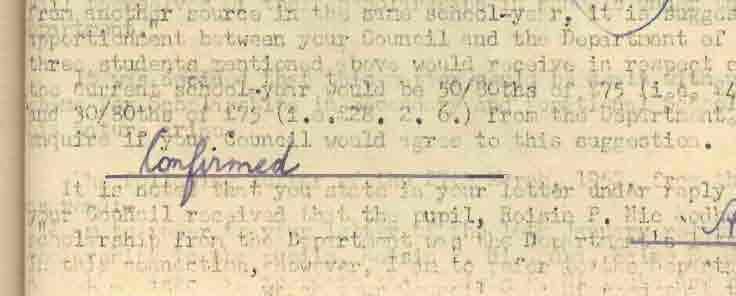 from another source in the same school-year, it is sugges
apportionment between your Council and the Department of
three students mentioned above would receive in respect o
the current school-year would be 50/80ths of £75 (i.e. £4
and 30/80ths of £75 (i.e.£28. 2. 6.) from the Department.
enquire if your Council would agree to this suggestion.
Confirmed
It is noted that you state in your letter under reply
your Council received that the pupil, Roisin P. Nic
scholarship from the Department
in this connection, however, I am to refer to the Departm